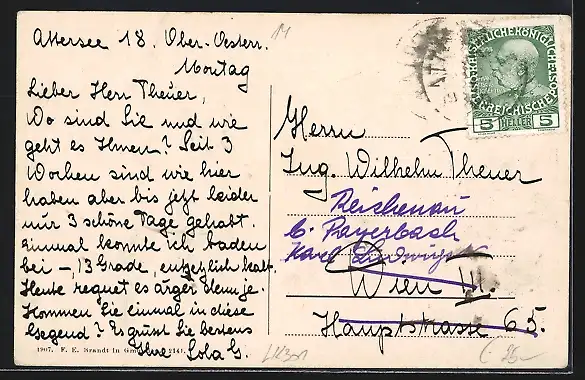 Attersee 18. Ober-Oesterr.
Montag
Lieber Herr Theuer,
Wo sind Sie und wie
geht es Ihnen? Seit 3
Wochen sind wir hier
haben aber bis jetzt leider
nur 3 schöne Tage gehabt.
Einmal konnte ich baden
bei –, 13 Grade, entsetzlich kalt.
Heute regnet es ärger denn je.
Kommen Sie einmal in diese
Gegend? Es grüßt Sie bestens
Ihre Lola G.
1907. F. E. Brandt in
KAISERLICHE KÖNIGLICHE
ÖSTERREICHISCHE POST
5 HELLER 5
Herrn
Ing. Wilhelm Theuer
Reichenau
b. Payerbach
Karl Ludwigstr
Wien III.
Hauptstrasse 65.